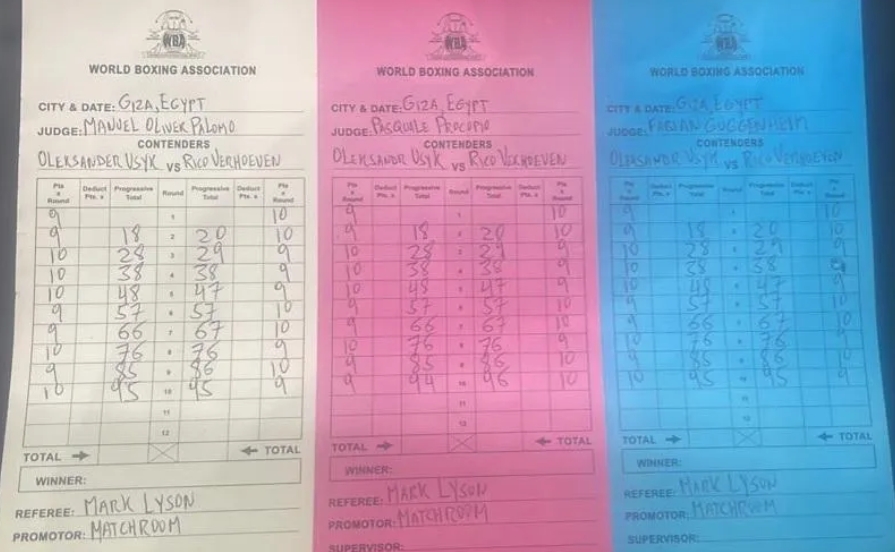 WBA
WORLD BOXING ASSOCIATION
CITY & DATE: GIZA, EGYPT
JUDGE: MANUEL OLIVER PALOMO
CONTENDERS
OLEKSANDER USYK VS RICO VERHOEVEN
Pts x Round Deduct Pts. x Progressive Total Round Progressive Total Deduct Pts. x Pts x Round
9 1 10
9 18 2 20 10
10 28 3 29 9
10 38 4 38 9
10 48 5 47 9
9 57 6 57 10
9 66 7 67 10
10 76 8 76 9
9 85 9 86 10
10 95 10 95 9
11
12
TOTAL TOTAL
WINNER:
REFEREE: MARK LYSON
PROMOTOR: MATCHROOM
WBA
WORLD BOXING ASSOCIATION
CITY & DATE: GIZA, EGYPT
JUDGE: PASQUALE PROCOPIO
CONTENDERS
OLEKSANDR USYK VS RICO VERHOEVEN
Pts x Round Deduct Pts. x Progressive Total Round Progressive Total Deduct Pts. x Pts x Round
9 1 10
9 18 2 20 10
10 28 3 29 9
10 38 4 38 9
10 48 5 47 9
9 57 6 57 10
9 66 7 67 10
10 76 8 76 9
9 85 9 86 10
9 94 10 96 10
11
12
TOTAL TOTAL
WINNER:
REFEREE: MARK LYSON
PROMOTOR: MATCHROOM
SUPERVISOR:
WBA
WORLD BOXING ASSOCIATION
CITY & DATE: GIZA, EGYPT
JUDGE: FABIAN GUGGENHEIM
CONTENDERS
OLEKSANDR USYK VS RICO VERHOEVEN
Pts x Round Deduct Pts. x Progressive Total Round Progressive Total Deduct Pts. x Pts x Round
9 10
9 18 20 10
10 28 29 9
10 38 38 9
10 48 47 9
9 57 57 10
9 66 67 10
10 76 76 9
9 85 86 10
10 95 95 9
11
12
TOTAL TOTAL
WINNER:
REFEREE: MARK LYSON
PROMOTOR: MATCHROOM
SUPERVISOR: